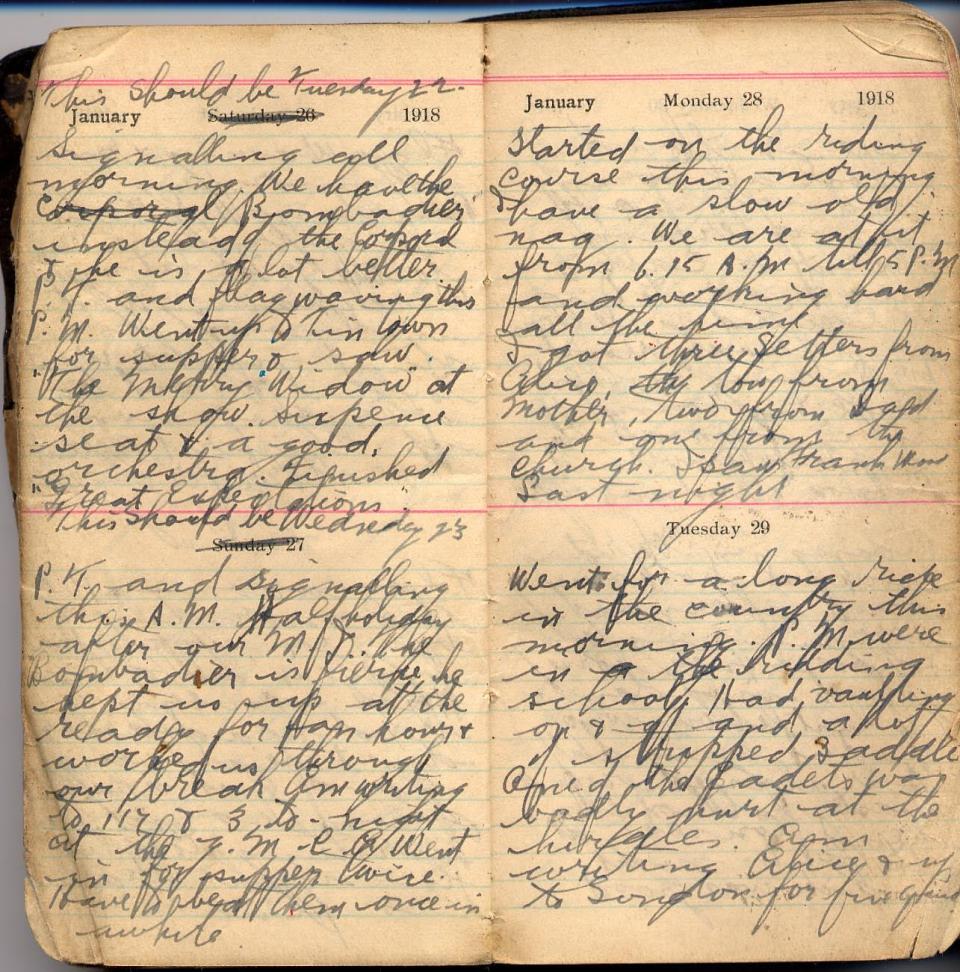 This should be Tuesday 22.
January Saturday 26 1918
Signalling all
morning. We have the
Corporal Bombadier
instead of the Corporal
& he is a lot better.
P.T. and flag waving this
P.M. Went up to town
for supper & saw
"The Merry Widow" at
the show. Sixpence
seat & a good
orchestra. Finished
"Great Expectations"
This should be Wednesday 23
Sunday 27
P.T. and Signalling
this A.M. Half holiday
after our M.T. The
Bombadier is fierce, he
kept us up at the
for hours &
worked us through
our break. Am writing
to 3 to-night
at the Y.M.C.A. Went
in for supper twice.
Have to beat them once in
awhile
January Monday 28 1918
Started on the riding
course this morning
& have a slow old
nag. We are at it
from 6.15 A.M till 5 P.M
and working hard
all the time
I got three letters from
Alice, two from
Mother, two from Dad
and one from the
Church. I saw Frank
Last night
Tuesday 29
Went for a long ride
in the country this
morning. P.M. were
in the Ridding
school. Had vaulting
on & off and a lot
of stripped saddle
One of the Cadets was
badly hurt at the
hurdles. Am
writing Alice & up
to London for five